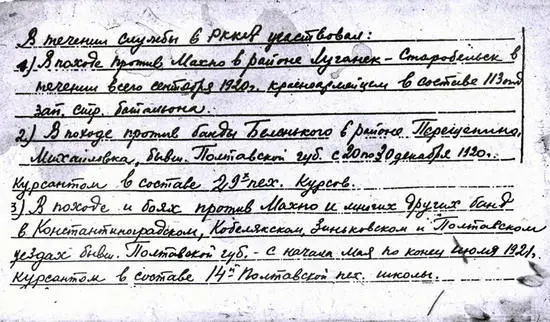 В течении службы в РККА участвовал:
1) В походе против Махно в районе Луганск – Старобельск в
течении всего сентября 1920г. красноармейцем в составе 113 отд
зап. стр. батальона.
2) В походе против банды Беленького в районе Перещепино,
Михайловка, бывш. Полтавской губ. с 20 по 30 декабря 1920г.
курсантом в составе 29х пех. Курсов.
3) В походе и боях против Махно и многих других банд
в Константиноградском, Кобелякском, Зиньковском и Полтавском
уездах бывш. Полтавской губ. – с начала мая по конец июля 1921г.
курсантом в составе 14й Полтавской пех. школы.